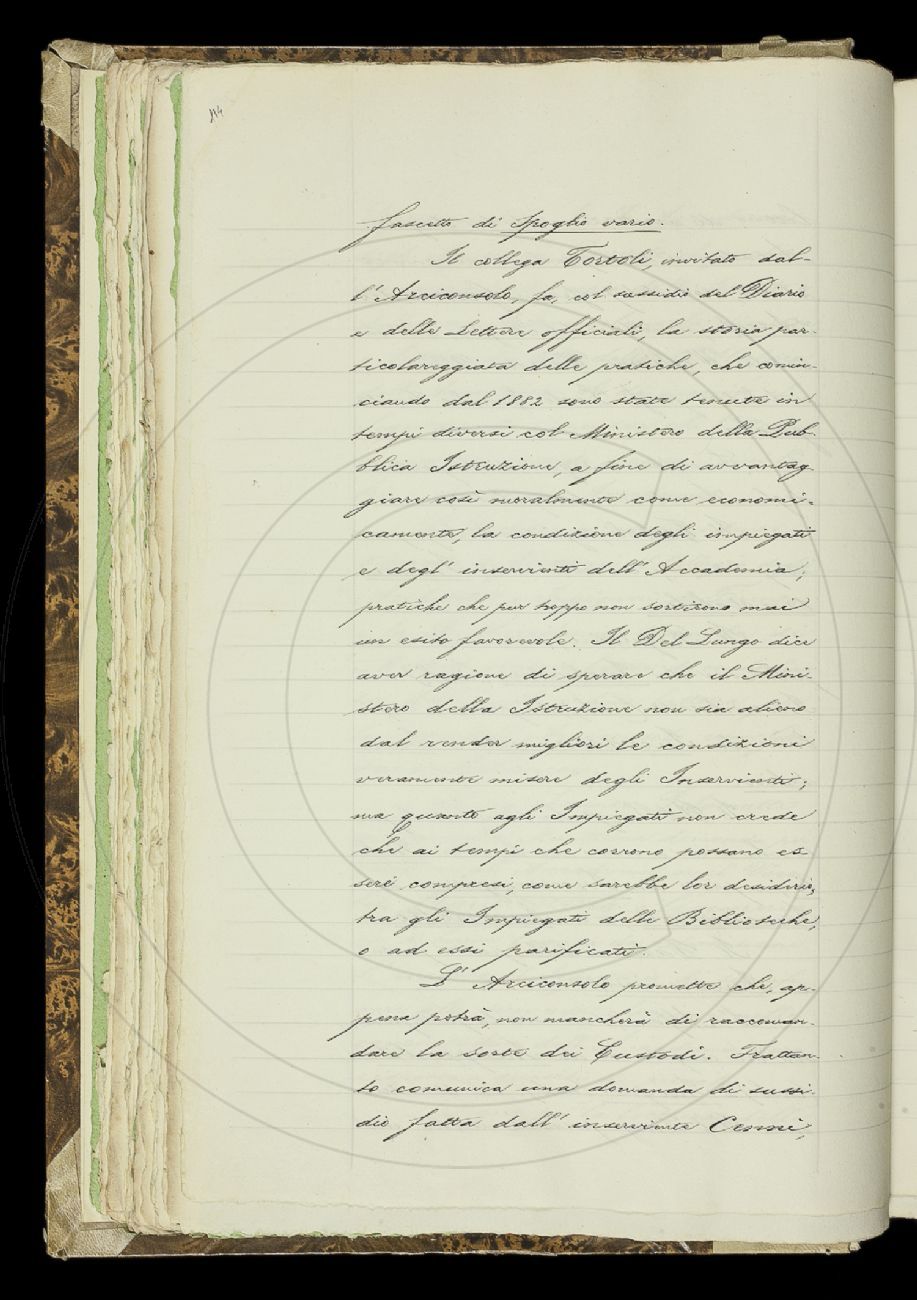 114
fascetto di Spoglio vario.
Il collega Tortoli, invitato dal-
l'Arciconsolo, fa, col sussidio del Diario
e delle Lettere officiali, la storia par-
ticolareggiata delle pratiche, che comin-
ciando dal 1882 sono state tenute in
tempi diversi col Ministero della Pub-
blica Istruzione, a fine di avvantag-
giare così moralmente come economi-
camente, la condizione degli impiegati
e degl'inservienti dell'Accademia;
pratiche che pur troppo non sortirono mai
un esito favorevole. Il Del Lungo dice
aver ragione di sperare che il Mini-
stero della Istruzione non sia alieno
dal render migliori le condizioni
veramente misere degli Inservienti;
ma quanto agli Impiegati non crede
che ai tempi che corrono possano es-
seré compresi, come sarebbe lor desiderio,
tra gli Impiegati delle Biblioteche,
o ad essi parificati.
L'Arciconsolo promette che, ap-
pena potrà, non mancherà di raccoman-
dare la sorte dei Custodi. Frattan-
to comunica una domanda di sussi-
dio fatta dall'inserviente Cenni,